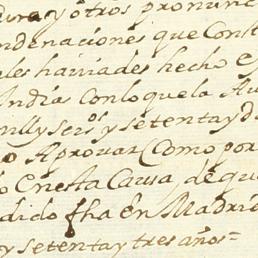 dura, y otros pronunc
ndenaciones que Const
les haviades hecho e
India Con lo que la Au
mill y seis.os y setenta y d
o Aprovar Como por
o en esta Causa, de que
dido fha en Madrid
y setenta y tres años =